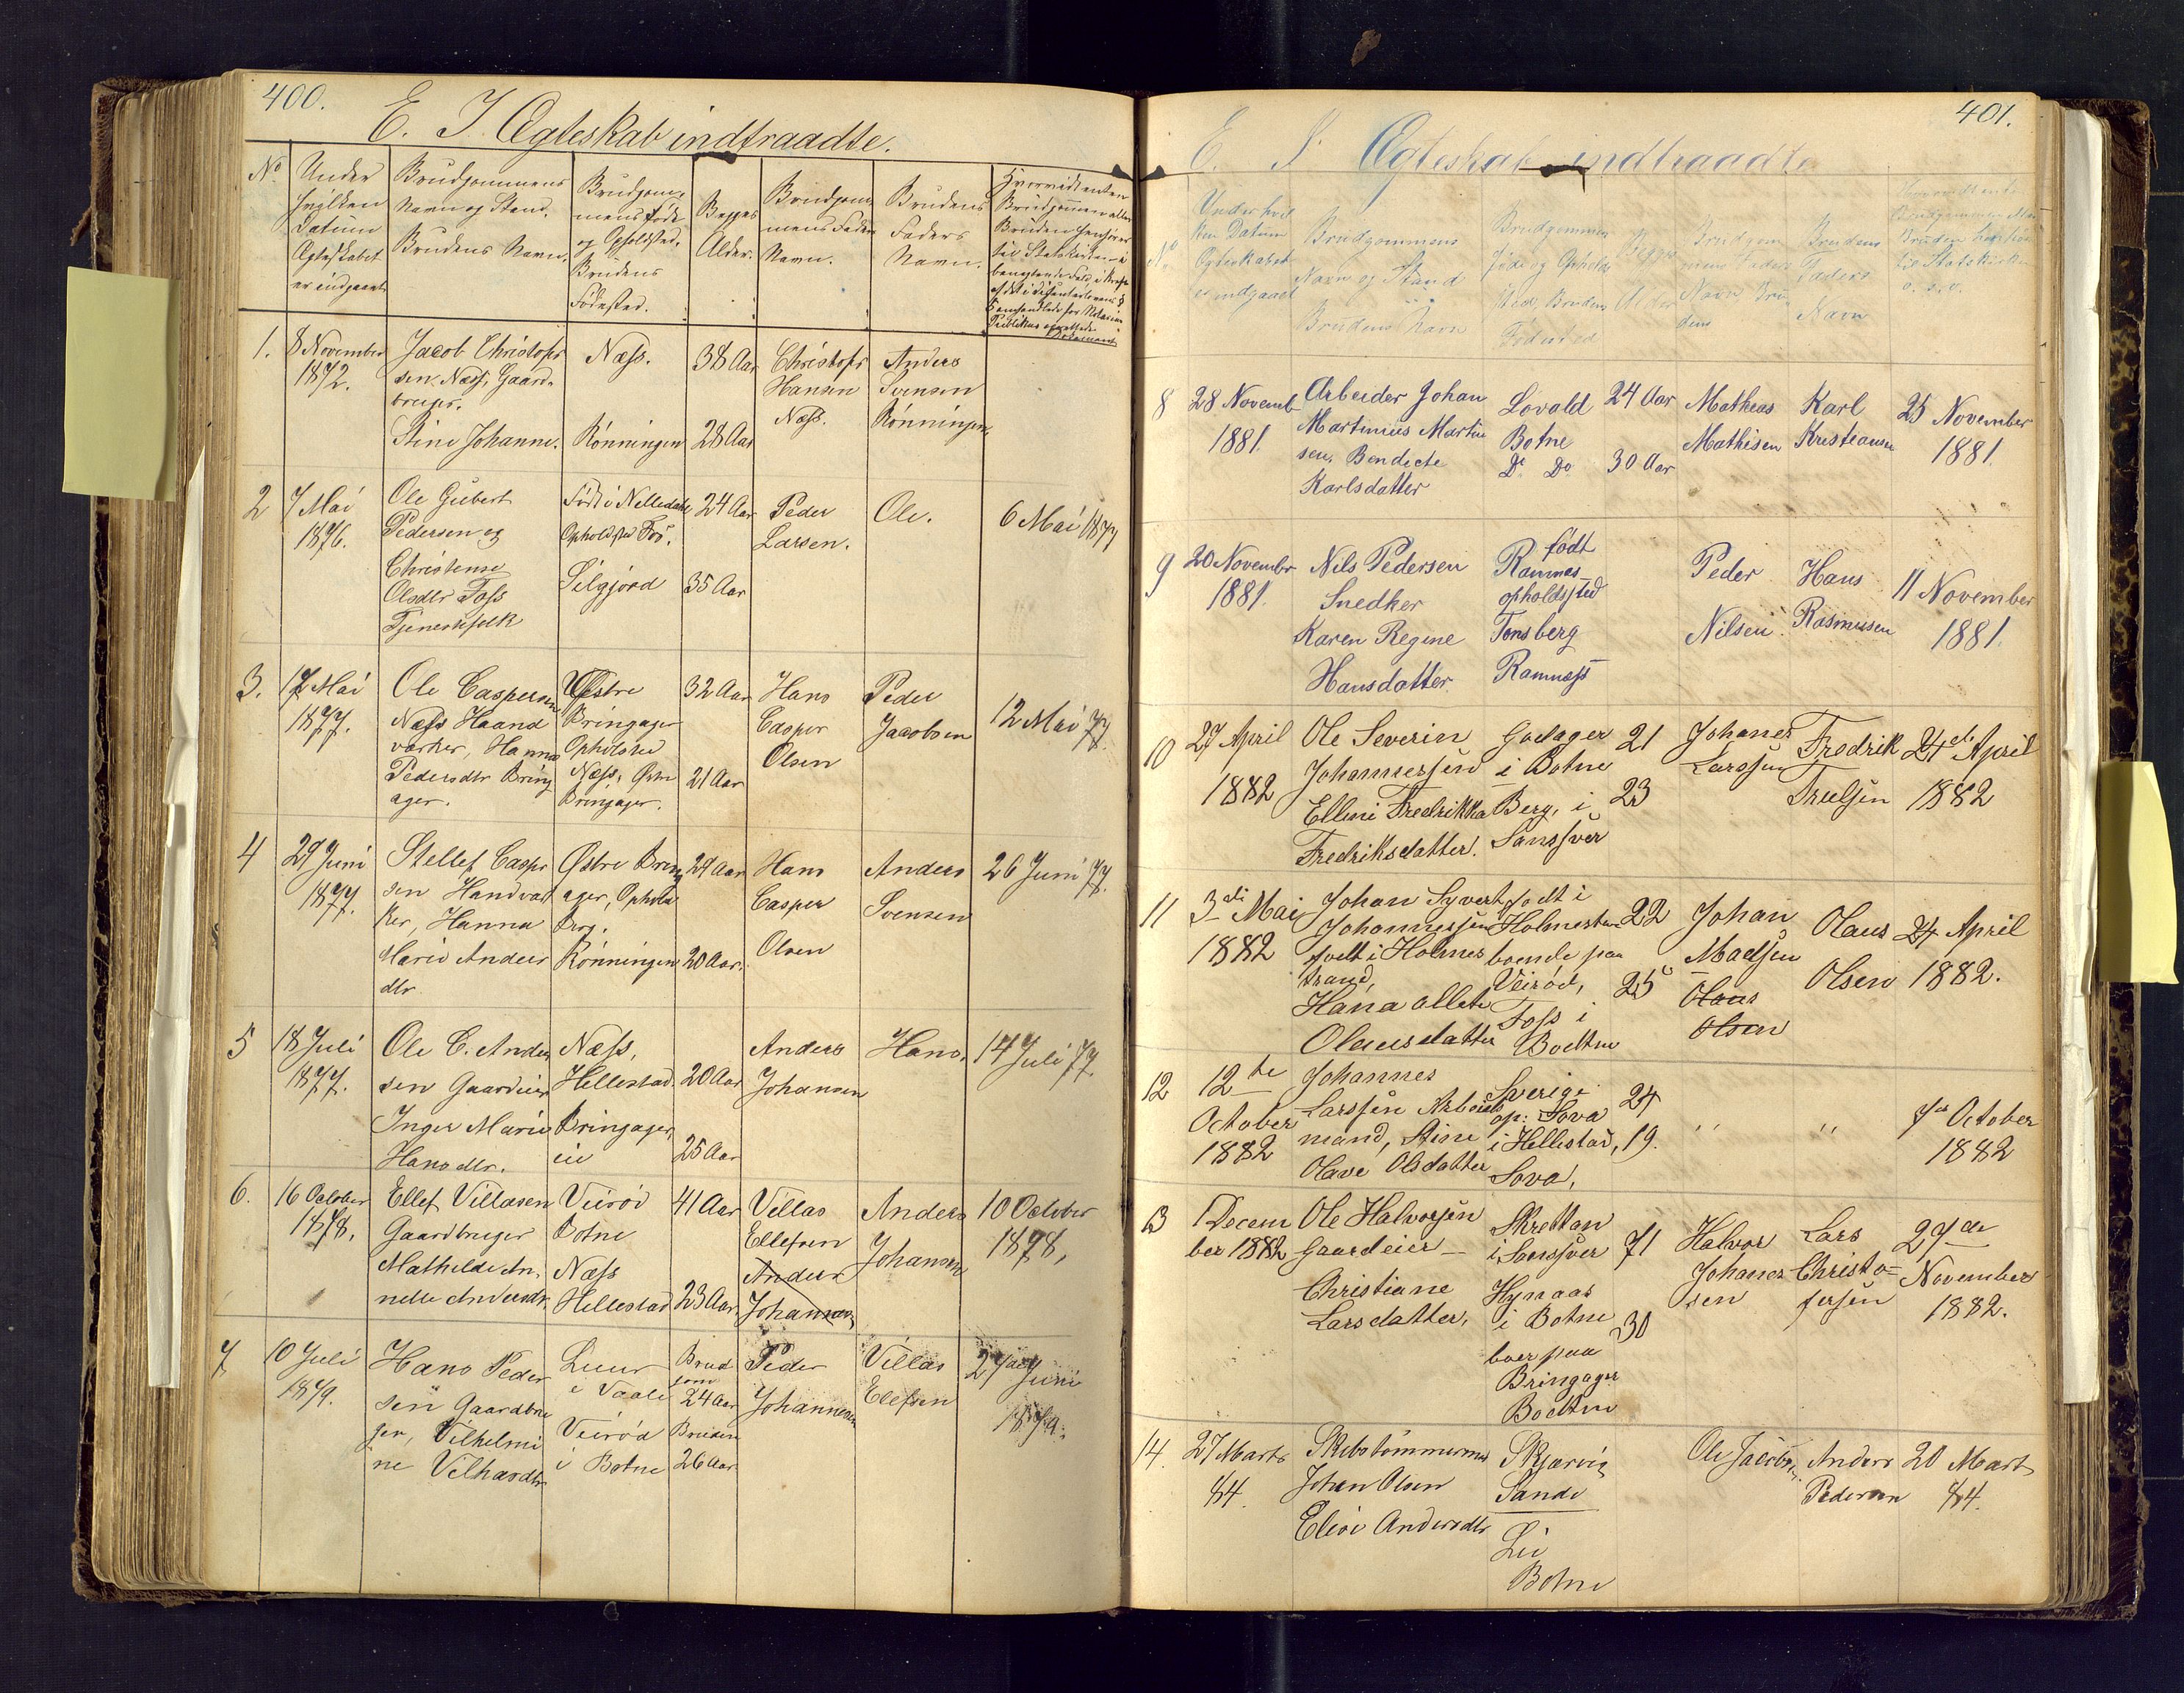 400.
E. I Ægteskab indtraadte.
No
Under hvilken Datum Ægteskabet er indgaaet
Brudgommens Navn og Stand. Brudens Navn.
Brudgommens føde og Opholdsted. Brudens Fødested.
Begges Alder.
Brudgommens Faders Navn.
Brudens Faders Navn.
Hvorvidt enten Brudgommen eller Bruden henhører til Statskirken i benegtende Fald,
1.
8 November
1872.
Jacob Christofer
sen Næss, Gaard-
bruger.
Stine Johanne.
Næss.
Rønningen
38 Aar
28 Aar
Christofer
Hansen
Næss.
Anders
Svensen
Rønningen
2
7 Mai
1876.
Ole Gubert
Pedersen og
Christense
Olsdtr Foss
Tjenestefolk
Født i
Opholdsted
Silgjord
24 Aar
35 Aar
Peder
Larsen.
Ole.
6 Mai 1877
3.
17 Mai
1877.
Ole Caspersen
Næss Haand
værker, Hanna
Pedersdtr Bring
ager.
Østre
Bringager
Opholsted
Næss, Østre
Bringager.
32 Aar
21 Aar
Hans
Casper
Olsen
Peder
Jacobsen
12 Mai 77.
4
29 Juni
1877.
Stellef Casper
sen Handvær
ker, Hanna
Marie Anders
dtr
Østre Bring
ager, Ophold
Brg.
Rønningen
29 Aar
20 Aar.
Hans
Casper
Olsen
Anders
Svensen
26 Juni 77.
5
18 Juli
1877.
Ole C. Ander
sen Gaardeier
Inger Marie
Hansdtr.
Næss,
Hellestad
Bringager,
20 Aar
25 Aar
Anders
Johansen
Hans.
14 Juli 77
6.
16 October
1878.
Ellef Villasen
Gaardbruger
Mathilde An.
nette Andersdtr
Veirød
Botne
Næss
Hellestad
41 Aar
23 Aar
Villas
Ellefsen
Anders
Johansen
Anders
Johansen
10 October
1878,
7
10 Juli
1879.
Hans Peder
sen Gaardbru
ger, Vilhelmi
ne Vilhasdtr
Luur
i Vaale
Veirød
i Botne
Brud
gom
24 Aar
Bruden
26 Aar
Peder
Johannesen
Villas
Elefsen
27 Juni
1879.
401.
E. I Ægteskab indtraadte
No
Under hvil
ken Datum
Ægteskabet
er indgaaet
Brudgommens
Navn og Stand
Brudens Navn
Brudgommens
føde og Opholds
sted, Brudens
Fødested
Begges
Alder
Brudgom
mens Faders
Navn Bru
dens
Brudens
Faders
Navn
Bruden
til Statskirken
o. s. v.
8
28 Novemb
1881.
Arbeider Johan
Martinius Martin
sen, Bendicte
Karlsdatter
Lovald
Botne
Do Do
24 Aar
30 Aar
Mathias
Mathisen
Karl
Kristiansen
25 November
1881.
9
20 Novembr
1881.
Nils Pedersen
Snedker
Karen Regine
Hansdatter
født
Ramnes
opholdssted
Tønsberg
Ramnæss
Peder
Nilsen
Hans
Rasmusen
11 November
1881.
10
27 April
1882
Ole Severin
Johannessen
Elleni Fredrikka
Fredriksdatter.
Godager
i Botne
Berg, i
Sandsver
21
23
Johanes
Larssen
Fredrik
Truelsen
24de April
1882
11
3di Mai
1882
Johan Syvert
Johannessen
født i Holmes
trand,
Hana allete
Olausdatter
født i
Holmestran
boende paa
Veirød,
Foss i
Bodtne
22
25
Johan
Madsen
Olaus
Olsen
Olaus
Olsen
24 April
1882.
12
12te
October
1882
Johannes
Larssen Arbeids
mand, Stine
Olave Olsdatter
Sverige
op: Sova
i Hellestad,
Sova,
24
19.
"
"
7de October
1882
13
1 Decem
ber 1882
Ole Halvorsen
Gaardeier
Christiane
Larsdatter,
Skrettan
i Sandsver
Hynaas
i Botne
boer paa
Bringager
Bodtne
71
30
Halvor
Johanes
sen
Lars
Christo=
fersen
29de
November
1882.
14.
27 Marts
84.
Skibstømmermand
Johan Olsen
Elise Andersdtr
Skjærvig
Sande
Lie
Botne
Ole Jacobsen
Anders
Pedersen
20 Mart
84.